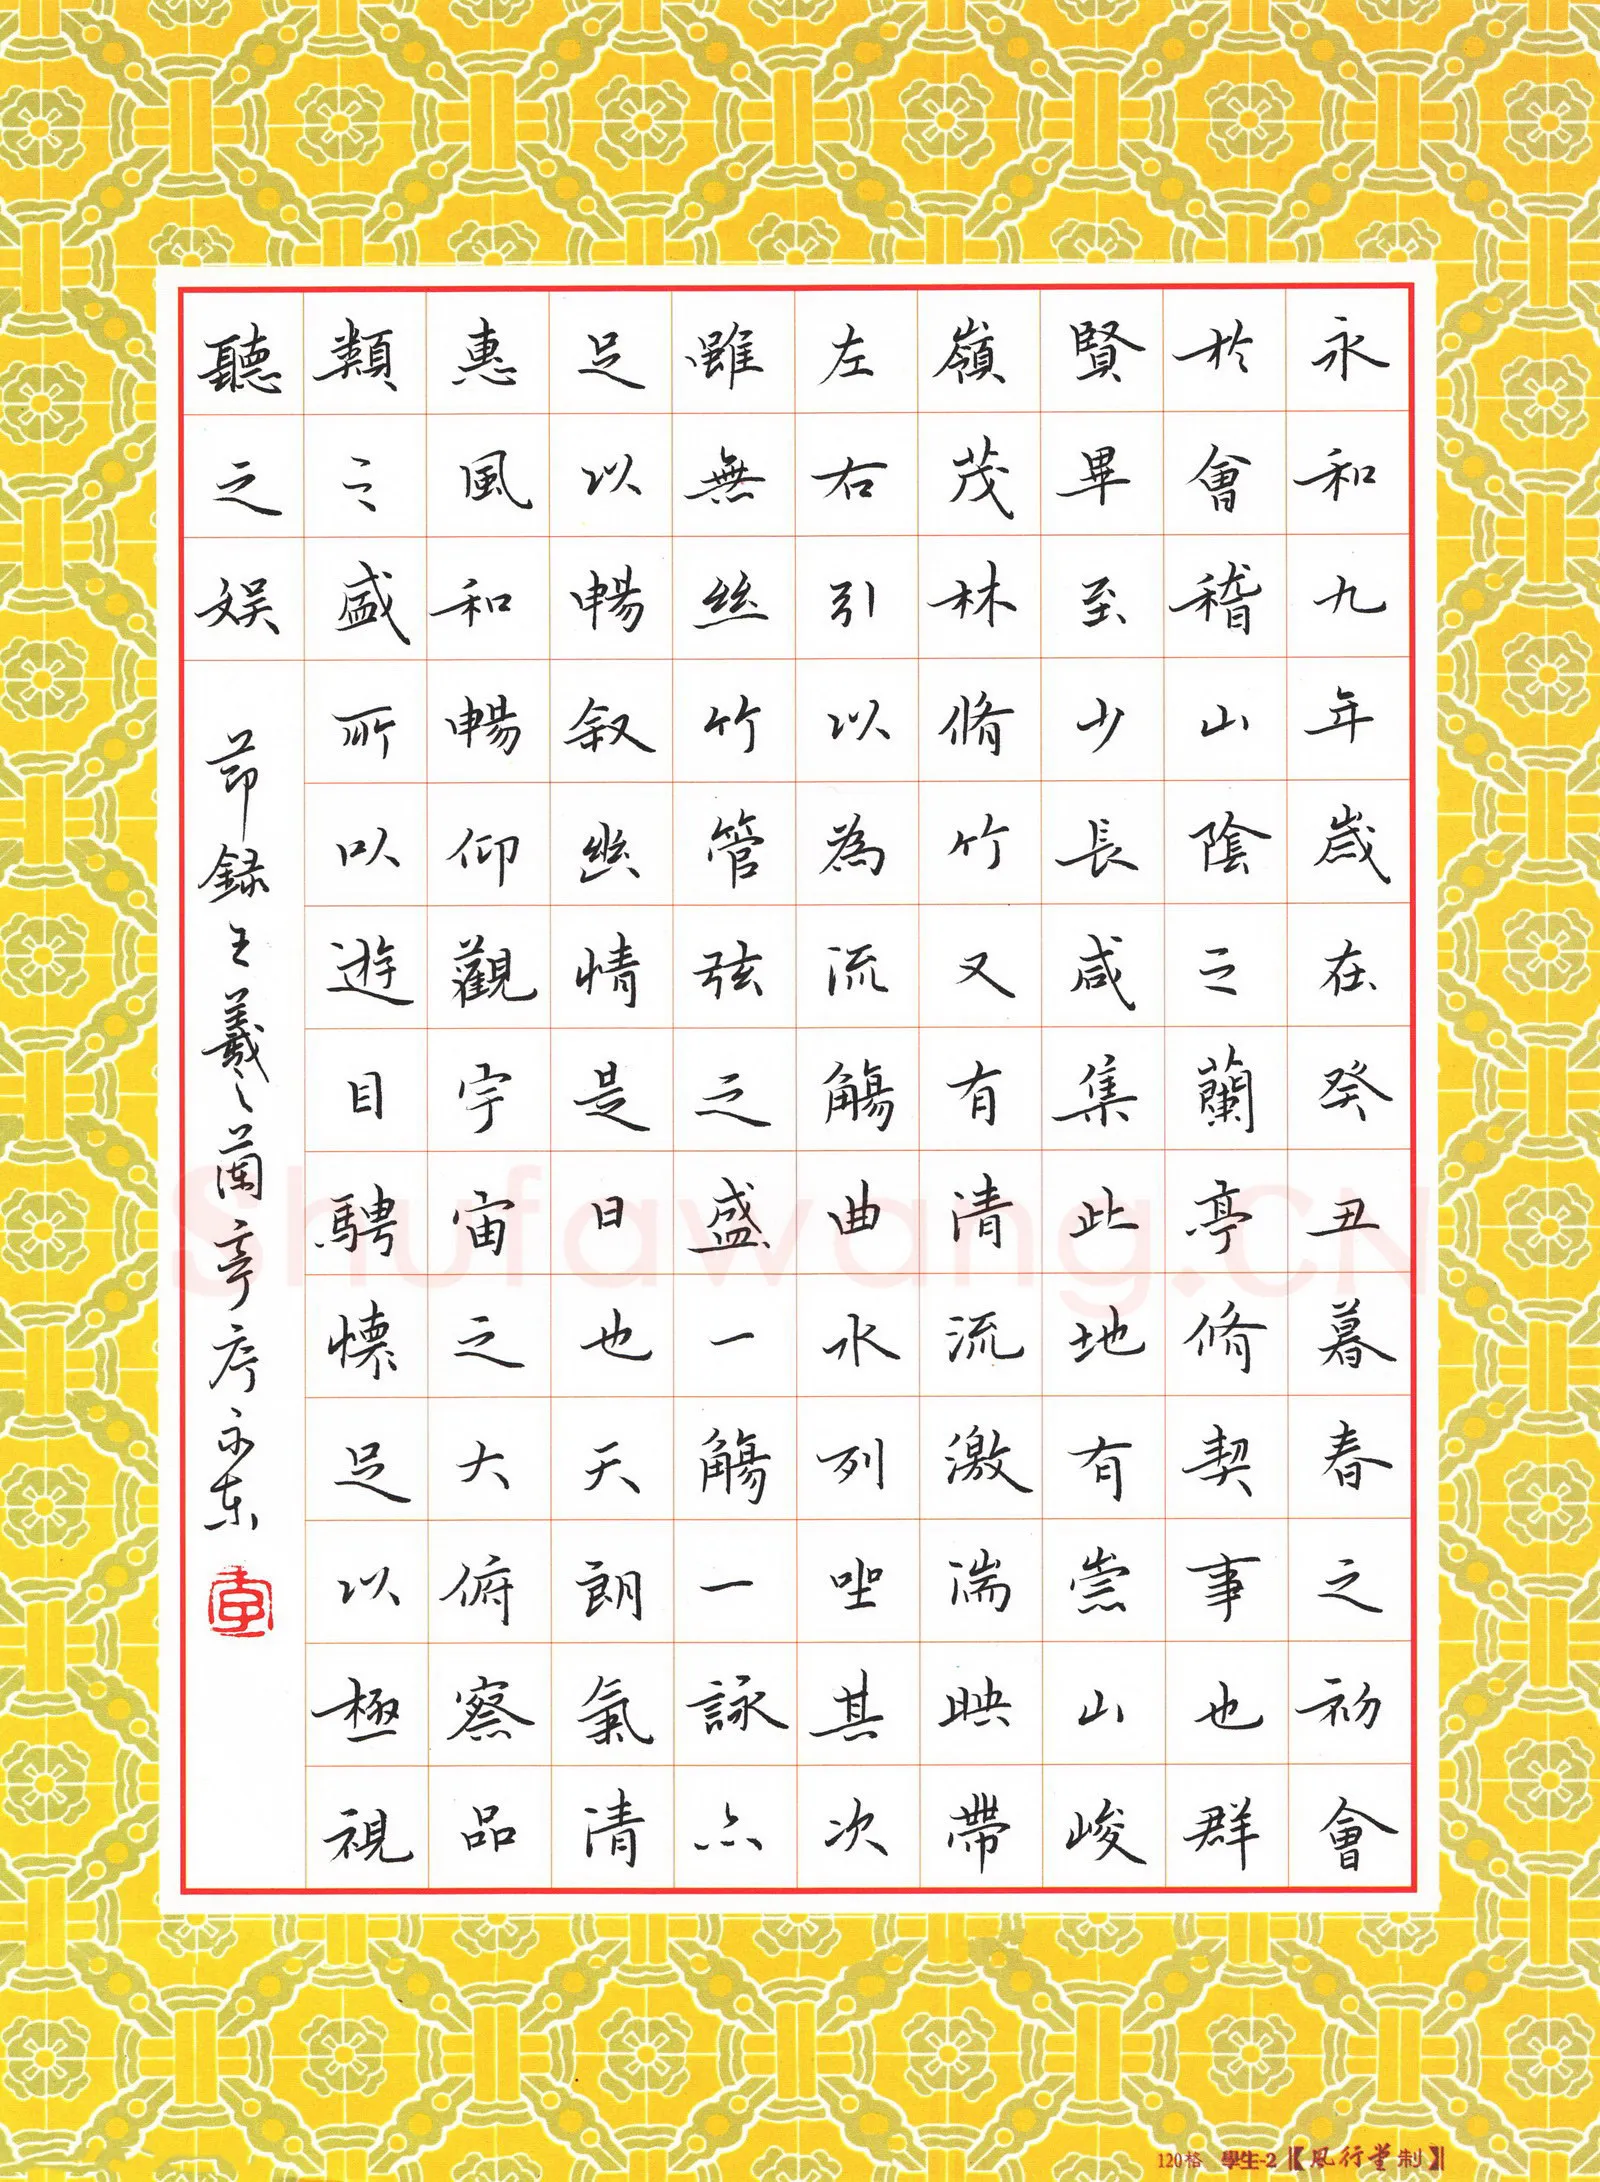 永和九年歲在癸丑暮春之初會
於會稽山陰之蘭亭脩契事也群
賢畢至少長咸集此地有崇山峻
嶺茂林脩竹又有清流激湍映帶
左右引以為流觴曲水列坐其次
雖無絲竹管弦之盛一觴一詠亦
足以暢叙幽情是日也天朗氣清
惠風和暢仰觀宇宙之大俯察品
類之盛所以遊目騁懷足以極視
聽之娛
節錄王羲之蘭亭序
Shufawang.CN
120格 學生-2【風行堂制】